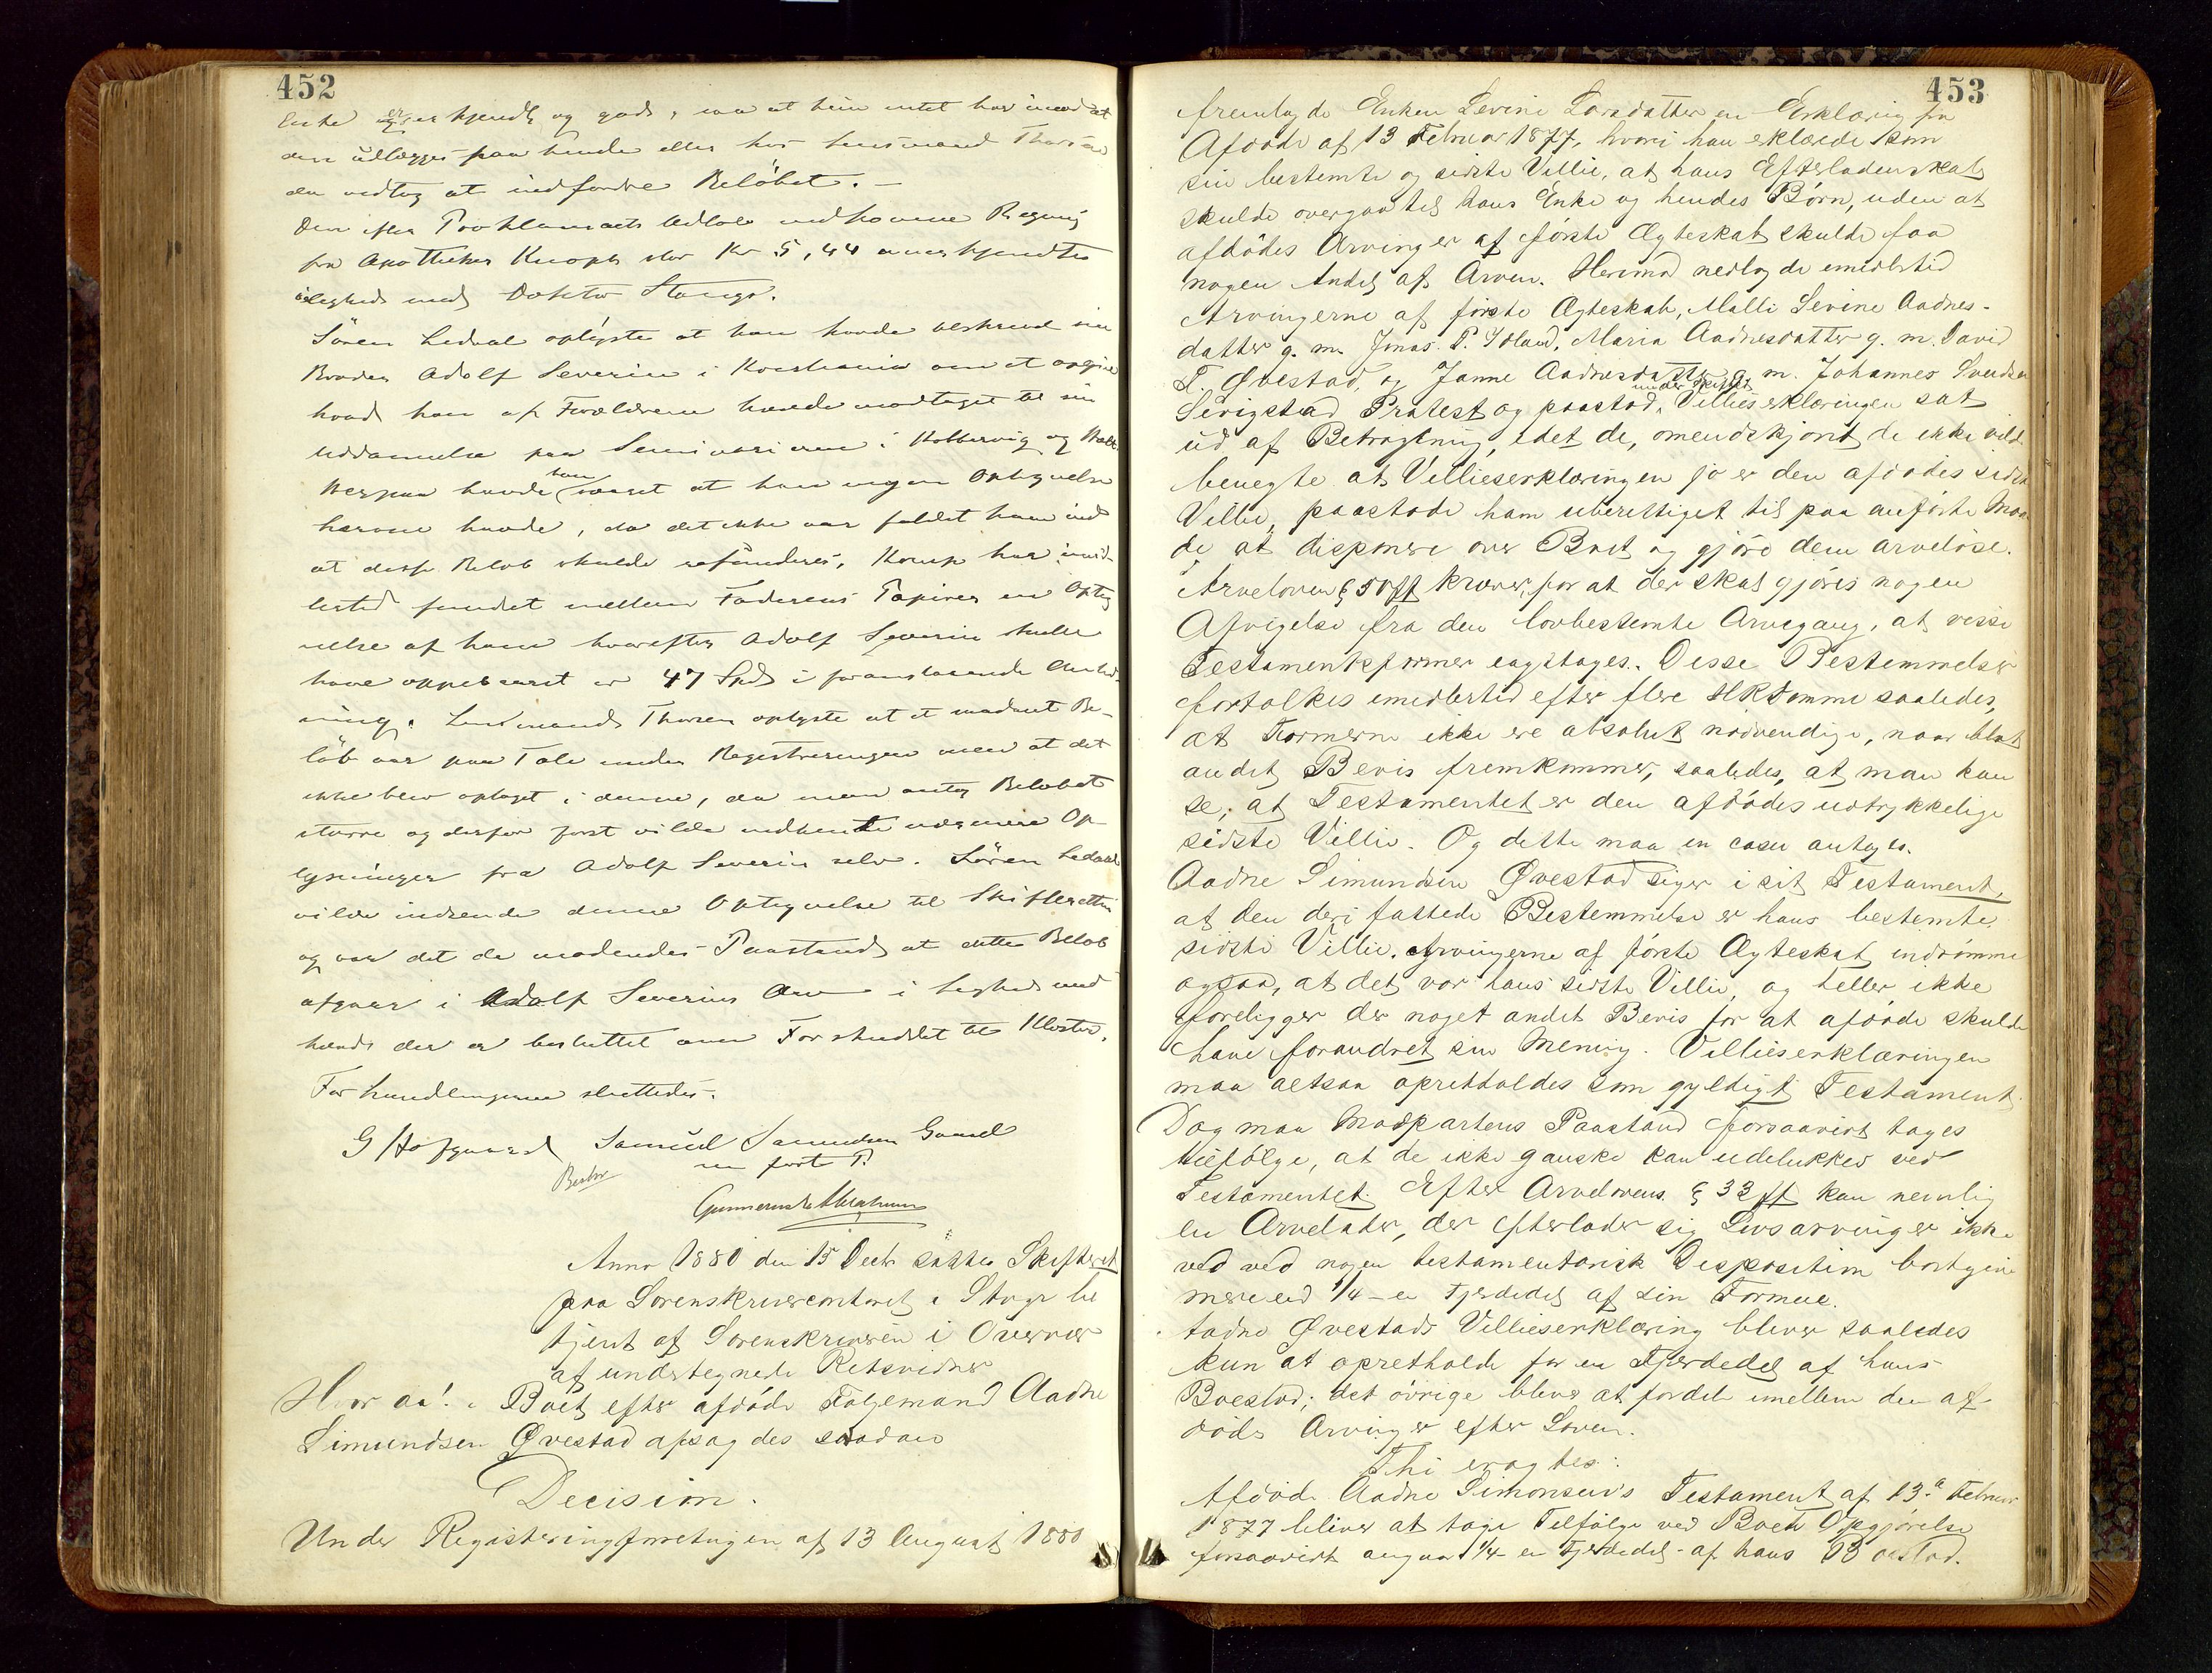 452
Enke er kjendt og godt, saa at hun intet har imod at
den udlægges paa hende eller hos Lensmand Thorsen
der vedtog at indfordre Beløbet. —
Den efter Proklamaets Udløb indkomne Regning
fra Apotheker Knoph stor Kr 5,44 anerkjendtes
ligeledes med Doktor Stangs.
Søren Ledaal oplyste at han havde tilskrevet sin
Broder Adolf Severin i Kristiania om at opgive
hvad han af Forældrene havde modtaget til sin
Uddannelse paa Seminarium i Holtervig og
Herpaa havde han svaret at han ingen Optegnelse
herom havde, da det ikke var faldet ham ind
at disse Beløb skulde refunderes. Komp har imid-
lertid fundet mellem Faderens Papirer en Opteg
nelse af ham hvorefter Adolf Severin skulle
have oppebaaret er 47 Spd i foranstaaende Anled-
ning. Lensmand Thorsen oplyste at et saadant Be-
løb var paa Tale under Registreringen men at det
ikke blev optaget i denne, da man antog Beløbet
større og derfor først vilde indhente nærmere Op-
lysninger fra Adolf Severin selv. Søren Ledaal
vilde indsende denne Optegnelse til Skifteretten
og var det de mødendes Paastand at dette Beløb
afgaar i Adolf Severins Arv i Lighed med
hvad der er besluttet om Forskuddet til
Forhandlingerne sluttedes.
G Hofgaard Samuel Samuelsen Gaard
m ført P.
Gunnerius Abrahamsen
Anno 1880 den 15 Decbr sattes Skifteret
paa Sorenskrivercontoret i Stege be
tjent af Sorenskriveren i Overvær
af undertegnede Retsvidner
Hvor da! i Boet efter afdøde Følgemand Aadne
Simundsen Øvestad afsagdes saadan
Decision.
Under Registeringsforretningen af 13 August 1880
453
fremlagde Enken Sevine Larsdatter en Erklæring fra
Afdøde af 13 Februar 1877, hvori han erklærede som
sin bestemte og sidste Villie, at hans Efterladenskab
skulde overgaa til hans Enke og hendes Børn, uden at
afdødes Arvinger af første Ægteskab skulde faa
nogen Andel af Arven. Herimod nedlagde imidlertid
Arvingerne af første Ægteskab, Malli Sevine Aadnes-
datter g. m. Jonas P. Idland, Maria Aadnesdatter g. m. David
T. Øvestad, og Janne Aadnesdatter g. m. Johannes Svendsen
Sevigstad Protest og paastod under Skiftet Villieserklæringen sat
ud af Betragtning, idet de, omendskjønt de ikke vilde
benegte at Villieserklæringen jo er den afdødes sidste
Villie, paastode ham uberettiget til paa anførte Maa-
de, at disponere over Boet og gjøre dem arveløse.
Arveloven § 50 ff kræver, for at der skal gjøres nogen
Afvigelse fra den lovbestemte Arvegang, at visse
Testamentsformer iagttages. Disse Bestemmelser
fortolkes imidlertid efter flere HRdomme saaledes,
at Formerne ikke ere absolut nødvendige, naar blot
andet Bevis fremkommer, saaledes, at man kan
se, at Testamentet er den afdødes udtrykkelige
sidste Villie. Og dette maa in casu antages.
Aadne Simundsen Øvestad siger i sit Testament,
at den deri fattede Bestemmelse er hans bestemte
sidste Villie. Arvingerne af første Ægteskab indrømme
ogsaa, at det var hans sidste Villie, og heller ikke
foreligger der noget andet Bevis for at afdøde skulde
have forandret sin Mening. Villieserklæringen
maa altsaa opretholdes som gyldigt Testament.
Dog maa Modpartens Paastand forsaavidt tages
tilfølge, at de ikke ganske kan udelukkes ved
Testamentet. Efter Arvelovens § 33 ff kan nemlig
en Arvelader, der efterlader sig Livsarvinger ikke
ved ved nogen testamentarisk Disposition bortgive
mere end 1/4 - en Fjerdedel af sin Formue.
Aadne Øvestads Villieserklæring bliver saaledes
kun at opretholde for en Fjerdedel af hans
Boeslod; det øvrige bliver at fordele imellem den af-
døds Arvinger efter Loven.
Thi eragtes:
Afdøde Aadne Simonsen's Testament af 13de Februar
1877 bliver at tage Tilfølge ved Boets Opgjørelse
forsaavidt angaar 1/4 - en Fjerdedel - af hans Boeslod.